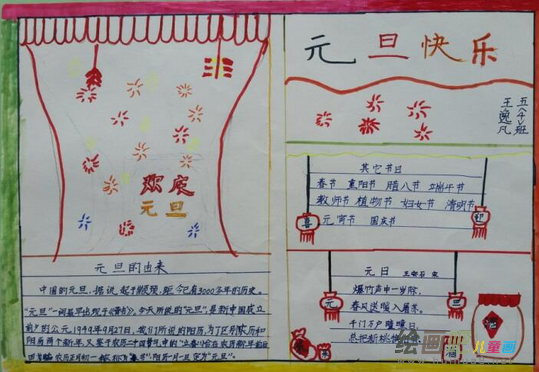 元旦快乐
五(4)班
王逸凡
欢庆
元旦
其它节日
春节 重阳节 腊八节 端午节
教师节 植树节 妇女节 清明节
元宵节 国庆节
元旦的由来
中国的元旦,据说起于颛顼,距今已有3000多年的历史。
"元旦"一词最早出现于《晋书》。今天所说的"元旦",是新中国成立
前夕的公元1949年9月27日,我们所说的阳历,为了区别农历和
阳历两个新年,又鉴于农历二十四节气中的"立春"恰在农历新年前后
农历正月初一改称为"春节",阳历一月一日定为"元旦"。
元日 王安石 宋
爆竹声中一岁除,
春风送暖入屠苏。
千门万户曈曈日,
总把新桃
绘画吧 儿童画